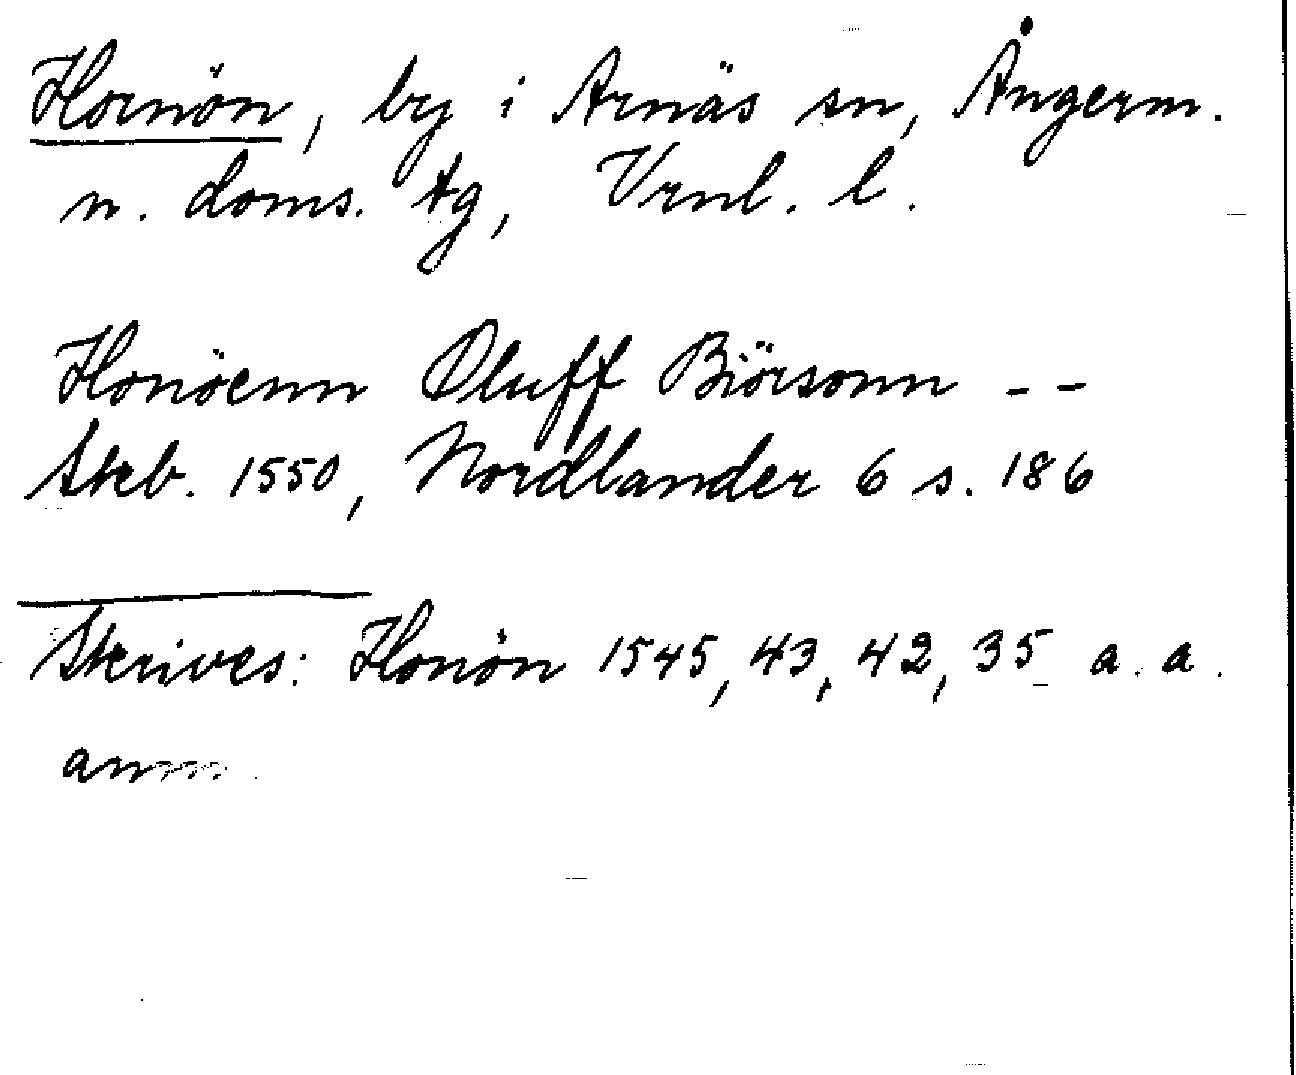 Hornön, by i Arnäs sn, Ångerm.
n. doms. tg, Vrnl. l.
Honöenn Oluff Biörsonn - -
Skb. 1550, Nordlander 6 s. 186
Skrives: Honön 1545, 43, 42, 35 a. a.
anm.